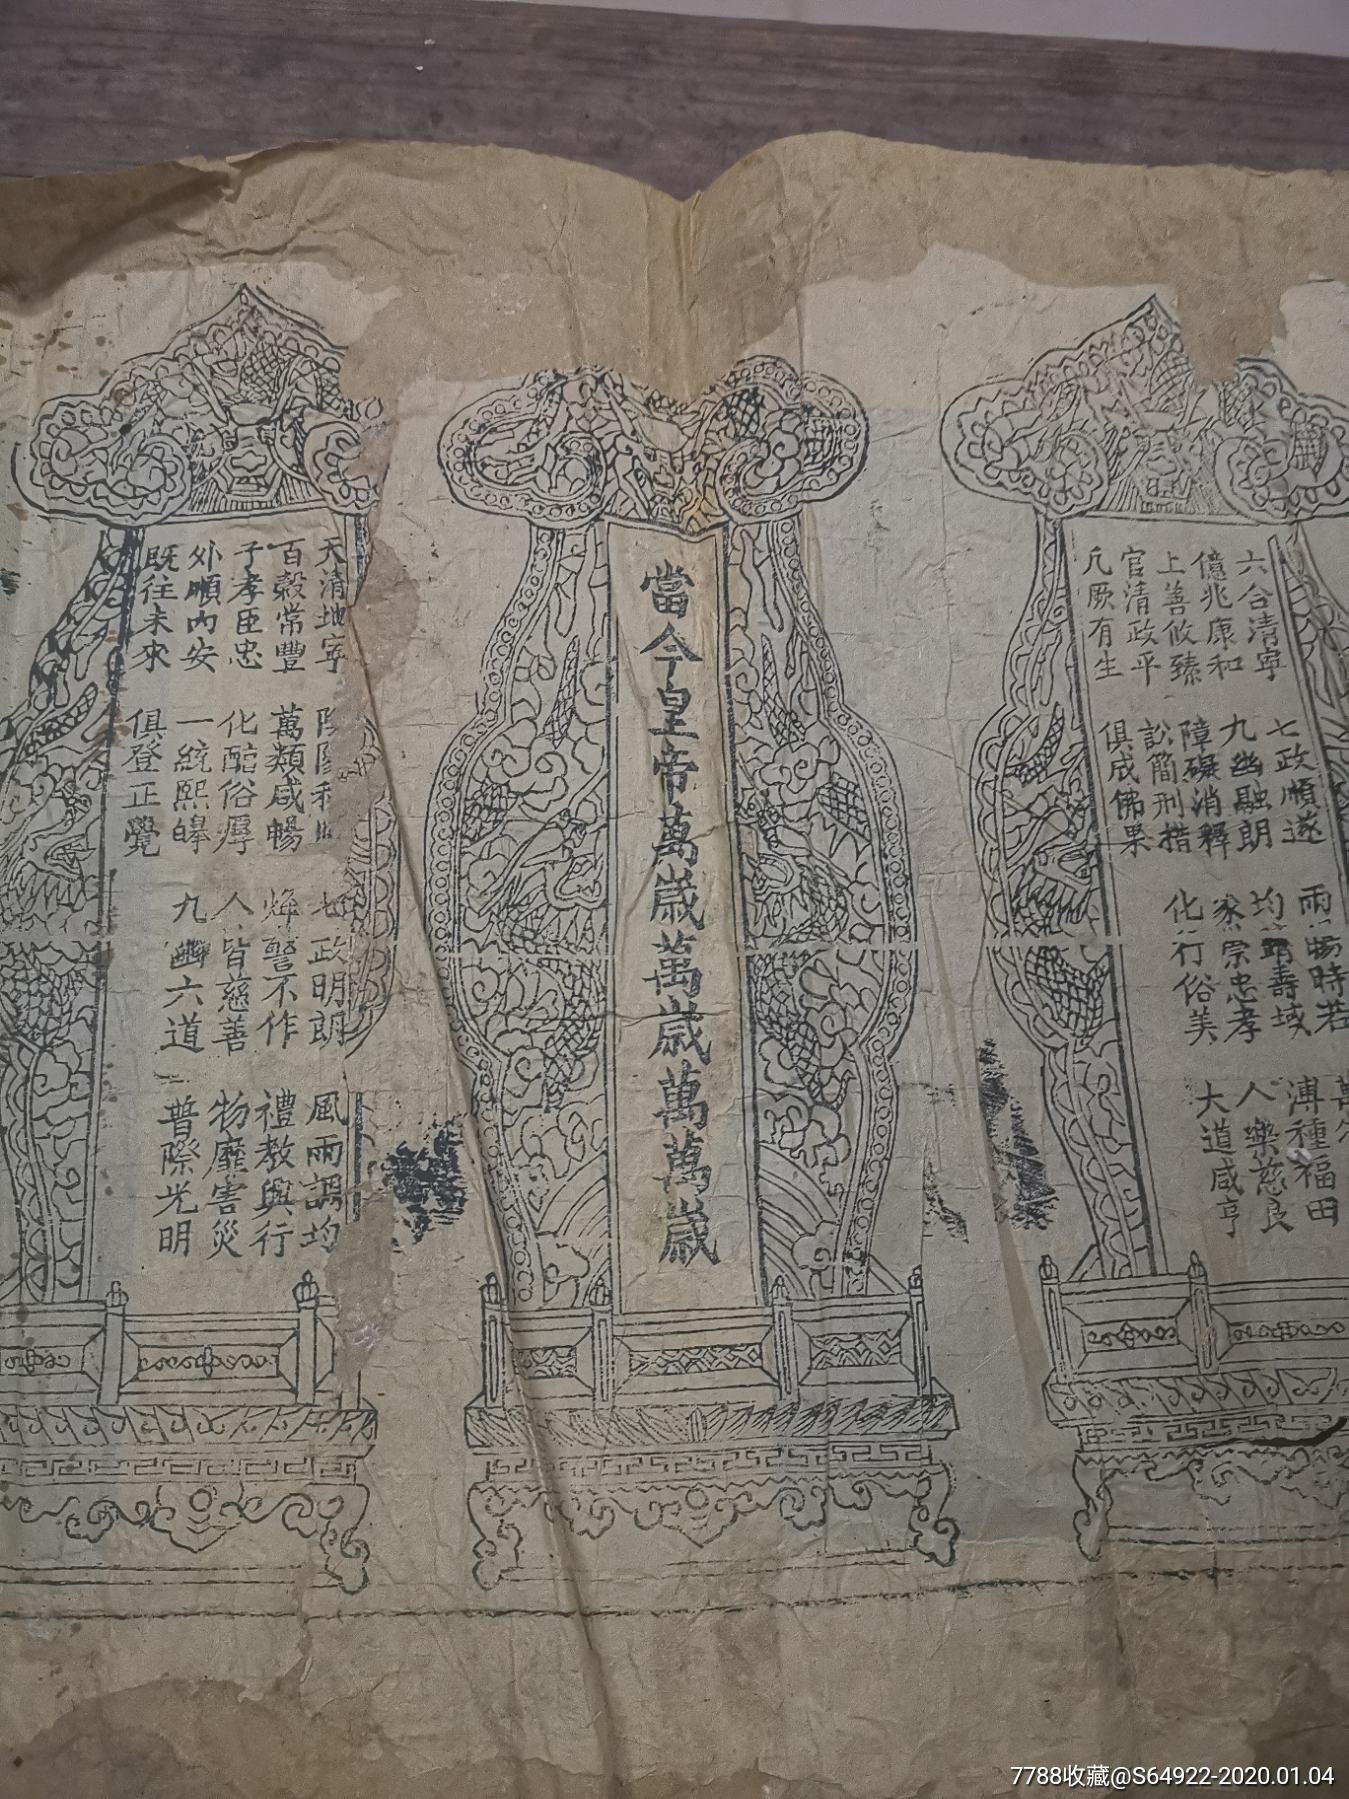 六合清寧 七政順遂 雨暘時若
億兆康和 九幽融朗 均躋壽域 溥種福田
上善攸臻 障礙消釋 家崇忠孝 人樂慈良
官清政平 訟簡刑措 化行俗美 大道咸亨
凡厥有生 俱成佛果
當今皇帝萬歲萬歲萬萬歲
天清地寧 七政明朗 風雨調均
百穀常豐 萬類咸暢 烽警不作 禮教興行
子孝臣忠 化醇俗厚 人皆慈善 物靡害災
外順內安 一統熙皞 九幽六道 普際光明
既往未來 俱登正覺
7788收藏@S64922-2020.01.04